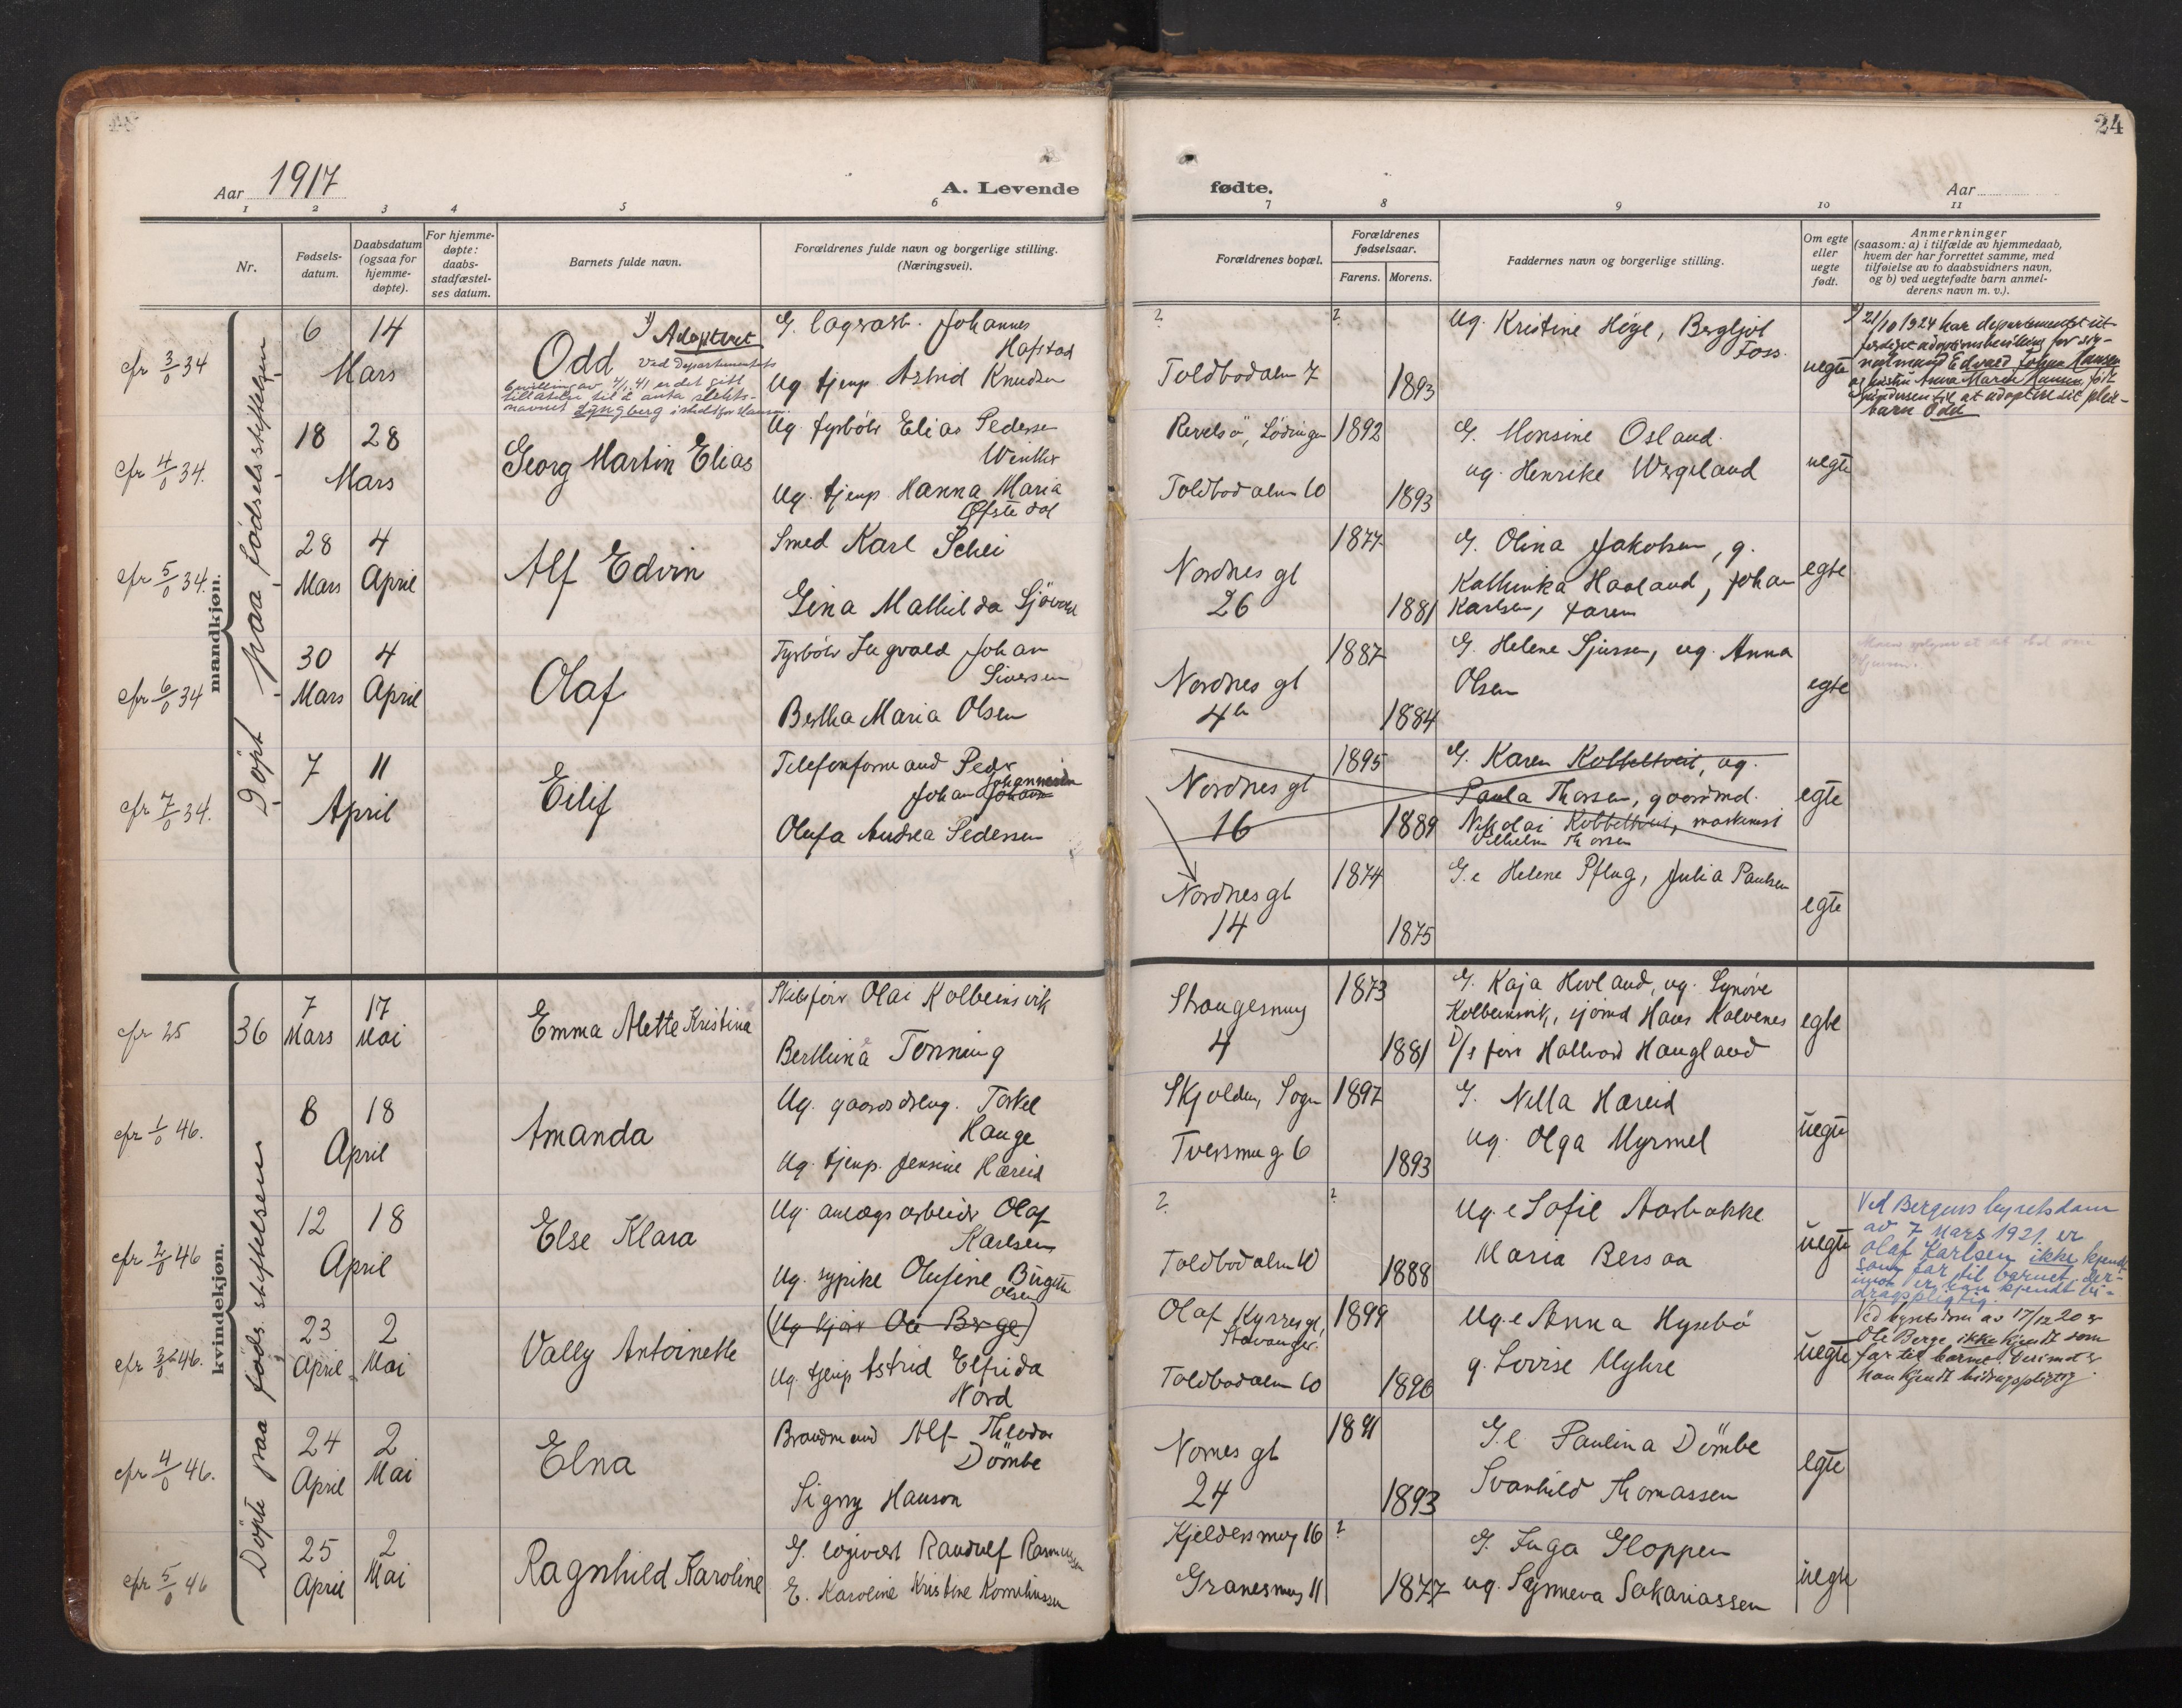 24
Aar 1917
A. Levende
fødte.
Aar
1 2 3 4 5 6 7 8 9 10 11
Nr.
Fødsels-
datum.
Daabsdatum
(ogsaa for
hjemme-
døpte).
For hjemme-
døpte:
daabs-
stadfæstel-
ses datum.
Barnets fulde navn.
Forældrenes fulde navn og borgerlige stilling.
(Næringsvei).
Forældrenes bopæl.
Forældrenes
fødselsaar.
Farens. Morens.
Faddernes navn og borgerlige stilling.
Om egte
eller
uegte
født.
Anmerkninger
(saasom: a) i tilfælde av hjemmedaab,
hvem der har forrettet samme, med
tilføielse av to daabsvidners navn,
og b) ved uegtefødte barn anmel-
derens navn m. v.).
mandkjøn.
Döpt paa fødselsstiftelsen
cfr 3/0 34
6 14
Mars
Odd
1) Adoptert
Ved Departementets
bevilling av 4/1.41 er det gitt
tillatelse til å anta slekts-
navnet Lyngberg istedetfor Hansen.
G. lagerarb. Johannes
Hafstad
Ug. tjenp. Astrid Knudsen
?
Toldbodalm 7
?
1893
Ug. Kristine Höge, Bergljot
Foss.
uegte
1) 21/10 1924 har departementet ut-
ferdiget adoptionsbevilling for sig-
nalmand Edvard Johan Hansen
og hustru Anna Marie Hansen født
Gundersen til at adoptere sit pleie-
barn Odd
cfr 4/0 34.
18 28
Mars
Georg Martin Elias
Ug. fyrböter Elias Pedersen
Winther
Ug. tjenp. Hanna Maria
Öftedal
Revelsö, Lödingen
Toldbodalm 10
1892
1893
G. Monsine Osland.
ug. Henrike Wergeland
uegte
cfr 5/0 34.
28 4
Mars April
Alf Edvin
Smed Karl Schei
Gina Mathilda Sjövold
Nordnes gt
26
1877
1881
G. Olina Jakobsen, g.
Kathinka Haaland, Johan
Karlsen, faren
egte
cfr 6/0 34
30 4
Mars April
Olaf
Fyrböter Ingvald Johan
Siversen
Bertha Maria Olsen
Nordnes gt
4a
1887
1884
G. Helene Sjursen, ug. Anna
Olsen
egte
cfr 7/0 34.
7 11
April
Eilif
Telefonformand Peder
Johan Johan Johannesen
Olufa Andrea Pedersen
Nordnes gt
16
1895
1889
G. Karen Kobbeltveit, ug.
Paula Thorsen, gaardmd.
Nikolai Kobbeltveit, maskinist
Vilhelm Thorsen
egte
Nordnes gt
14
1874
1875
G.e Helene Pflug, Julia Paulsen
egte
kvindekjøn.
Döpte paa föds. stiftelsen
cfr 25
36
7 17
Mars Mai
Emma Alette Kristina
Skibsförer Olai Kolbeinsvik
Berthina Tonning
Strangesmug
4
1873
1881
G. Kaja Hovland, ug. Synöve
Kolbeinsvik, sjömd Hans Kalvenes
D/s förer Hallvard Haugland
egte
cfr 1/0 46.
8 18
April
Amanda
Ug. gaardsdreng. Torkel
Hauge
Ug. tjenp. Jensine Hæreid
Skjolden, Sogn
Tversmug 6
1897
1893
G. Nilla Hæreid
ug. Olga Myrmel
uegte
cfr 2/0 46
12 18
April
Else Klara
Ug. anlægsarbeider Olaf
Karlsen
Ug. sypike Olufine Birgitte
Olsen
?
Toldbodalm 10
?
1888
Ug.e Sofie Aarbakke
Maria Bersaa
uegte
Ved Bergens byretsdom
av 7 Mars 1921. er
Olaf Karlsen ikke kjendt
som far til barnet, der-
imot er han kjendt bi-
dragspligtig.
cfr 3/0 46.
23 2
April Mai
Vally Antoinette
(Ug kjör Ole Berge)
Ug. tjenp Astrid Elfrida
Nord
Olaf Kyrresgt,
Stavanger.
Toldbodalm 10
1899
1896
Ug.e Anna Hysebö
g. Lovise Myhre
uegte
Ved byretsdom av 17/12 20 er
Ole Berge ikke kjendt som
far til barnet. Derimot er
han kjendt bidragspligtig.
cfr 4/0 46.
24 2
April Mai
Elna
Brandmand Alf Theodor
Dömbe
Signy Hanson
Nornes gt
24
1891
1893
G.e Paulina Dömbe
Svanhild Thomassen
egte
cfr 5/0 46
25 2
April Mai
Ragnhild Karoline
G. logivært Randulf Rasmussen
E. Karoline Kristine Kornelinssen
Kjeldersmug 16
Granesmug 11
?
1877
G. Inga Gloppen
ug. Synneva Sakariassen
uegte